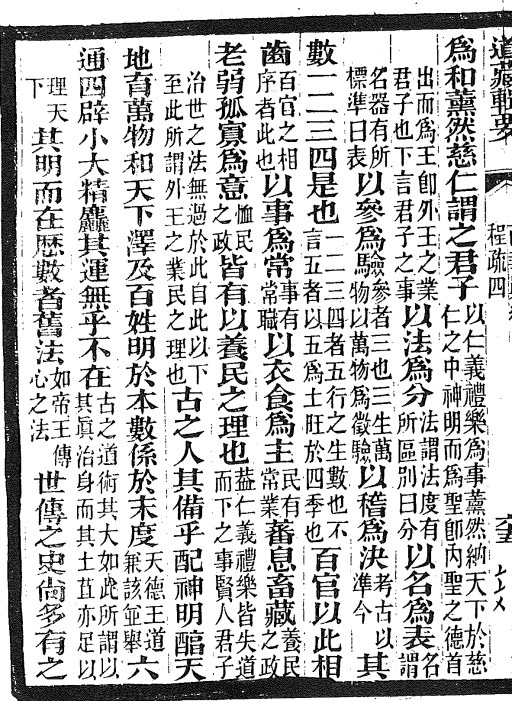 道藏輯要
程疏四
為和薰然慈仁謂之君子以仁義禮樂為事薰然納天下於慈仁之中神明而為聖即內聖之德首
出而為王即外王之業君子也下言君子之事以法為分法謂法度有所區別曰分以名為表名謂
名器有所標準曰表以參為驗參者三也三生萬物以萬物為徵驗以稽為決考古以準今其
數一二三四是也一二三四者五行之生數也不言五者以五為土旺於四季也百官以此相
齒百官之相序者此也以事為常事有常職以衣食為主民有常業蕃息畜藏養民之政
老弱孤寡為意恤民之政皆有以養民之理也蓋仁義禮樂皆失道而下之事賢人君子
治世之法無過於此自此以下至此所謂外王之業民之理也古之人其備乎配神明醇天
地育萬物和天下澤及百姓明於本數係於末度天德王道兼該並舉六
通四辟小大精麤其運無乎不在古之道術其大如此所謂以其眞治身而其土苴亦足以
理天下其明而在歷數者舊法如帝王傳心之法世傳之史尚多有之